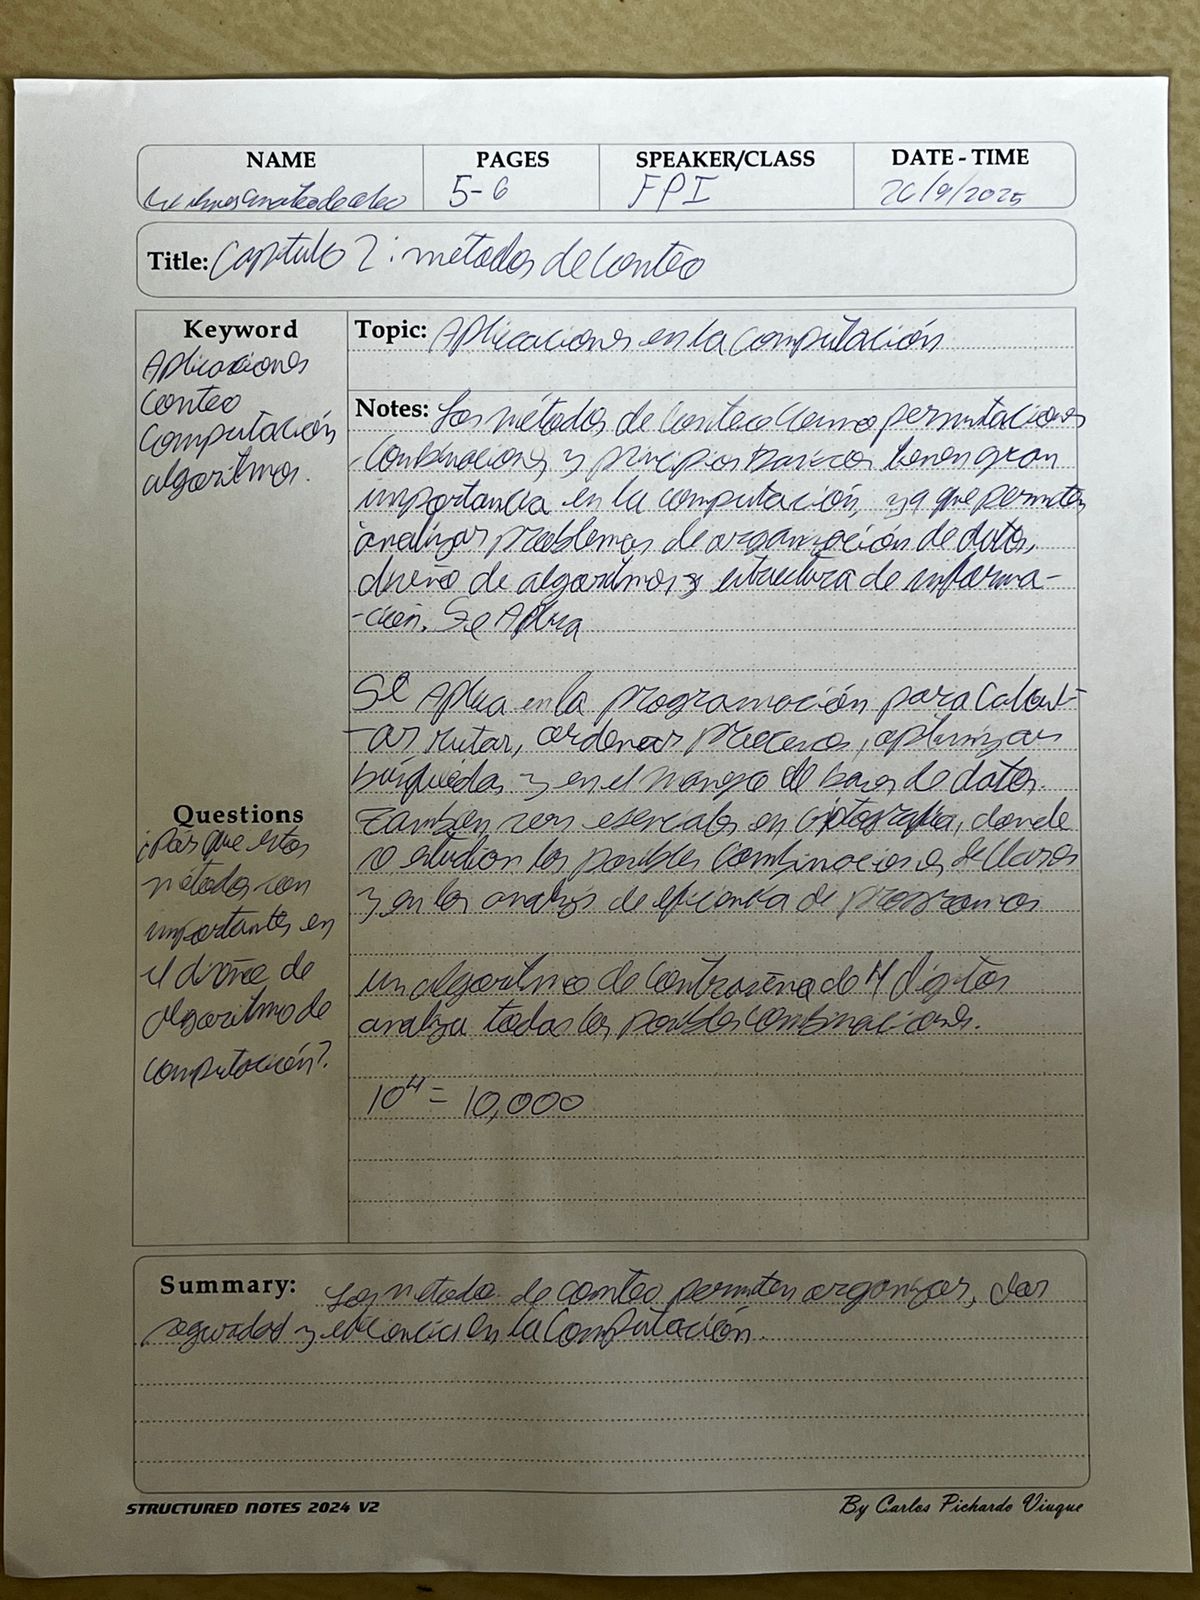 NAME PAGES SPEAKER/CLASS DATE - TIME
5-6 FPI 26/9/2025
Title: Capitulo 2: métodos de Conteo
Keyword
Aplicaciones
Conteo
Computación
algoritmos.
Topic: Aplicaciones en la computación
Notes: Los métodos de Conteo como permutaciones
Combinaciones y principios basicos tienen gran
importancia en la computación, ya que permiten
analizar problemas de organización de datos,
diseño de algoritmos y estructura de informa-
-ción. Se Aplica
Se Aplica en la programación para Calcul-
-ar rutas, ordenar procesos, optimizar
búsquedas y en el manejo de bases de datos.
También son esenciales en criptografia, donde
se estudian las posibles Combinaciones de llaves
y en los analisis de eficiencia de programas
un algoritmo de Contraseña de 4 digitos
analiza todas las posibles combinaciones.
10⁴ = 10,000
Questions
¿Por que estos
métodos son
importantes en
el diseño de
algoritmo de
computación?
Summary: Los metodo de conteo permiten organizar, dar
seguridad y eficiencia en la Computación.
STRUCTURED NOTES 2024 V2
By Carlos Pichardo Viuque